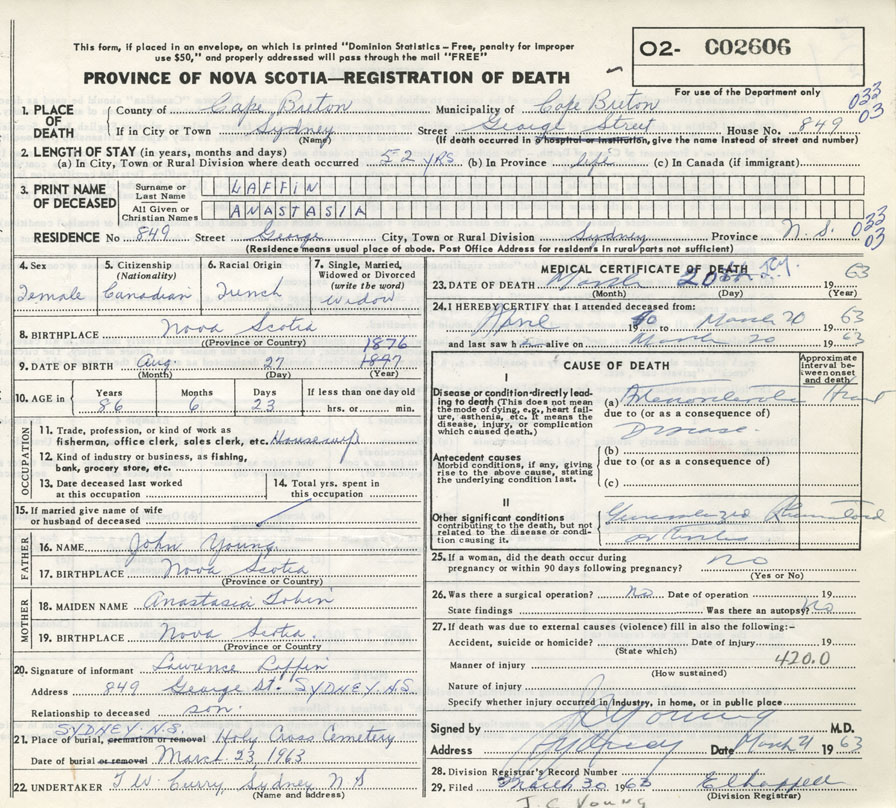 This form, if placed in an envelope, on which is printed "Dominion Statistics – Free, penalty for improper
use $50," and properly addressed will pass through the mail "FREE"
O2- C02606
PROVINCE OF NOVA SCOTIA—REGISTRATION OF DEATH
For use of the Department only
033
03
1. PLACE OF DEATH
County of Cape Breton Municipality of Cape Breton
If in City or Town Sydney Street George Street House No. 849
(Name) (If death occurred in a hospital or institution, give the name instead of street and number)
2. LENGTH OF STAY (in years, months and days)
(a) In City, Town or Rural Division where death occurred 52 yrs (b) In Province life (c) In Canada (if immigrant)
3. PRINT NAME OF DECEASED
Surname or Last Name LAFFIN
All Given or Christian Names ANASTASIA
033
03
RESIDENCE No 849 Street George City, Town or Rural Division Sydney Province N.S.
(Residence means usual place of abode. Post Office Address for residents in rural parts not sufficient)
4. Sex Female
5. Citizenship (Nationality) Canadian
6. Racial Origin French
7. Single, Married, Widowed or Divorced (write the word) widow
8. BIRTHPLACE Nova Scotia
(Province or Country)
1876
9. DATE OF BIRTH Aug. 27 1897
(Month) (Day) (Year)
10. AGE in Years Months Days If less than one day old
86 6 23 hrs. or min.
OCCUPATION
11. Trade, profession, or kind of work as
fisherman, office clerk, sales clerk, etc. Housewife
12. Kind of industry or business, as fishing,
bank, grocery store, etc.
13. Date deceased last worked
at this occupation
14. Total yrs. spent in
this occupation
15. If married give name of wife
or husband of deceased
FATHER
16. NAME John Young
17. BIRTHPLACE Nova Scotia
(Province or Country)
MOTHER
18. MAIDEN NAME Anastasia Tobin
19. BIRTHPLACE Nova Scotia.
(Province or Country)
20. Signature of informant Lawrence Laffin
Address 849 George St. SYDNEY N.S.
Relationship to deceased son.
SYDNEY N.S.
21. Place of burial, cremation or removal Holy Cross Cemetery
Date of burial or removal March 23, 1963
22. UNDERTAKER T W Curry, Sydney N S
(Name and address)
MEDICAL CERTIFICATE OF DEATH
23. DATE OF DEATH March 20th 1963
(Month) (Day) (Year)
24. I HEREBY CERTIFY that I attended deceased from:
April 19 60 to March 20 1963
and last saw h alive on March 20 1963
CAUSE OF DEATH
Approximate interval between onset and death
I
Disease or condition directly leading to death (This does not mean
the mode of dying, e.g., heart failure, asthenia, etc. It means the
disease, injury, or complication
which caused death.)
(a) Heart
due to (or as a consequence of)
Disease.
Antecedent causes
Morbid conditions, if any, giving
rise to the above cause, stating
the underlying condition last.
(b)
due to (or as a consequence of)
(c)
II
Other significant conditions
contributing to the death, but not
related to the disease or condition causing it.
Generalized Rheumatoid
arthritis
25. If a woman, did the death occur during
pregnancy or within 90 days following pregnancy? no
(Yes or No)
26. Was there a surgical operation? no Date of operation 19
State findings Was there an autopsy? No
27. If death was due to external causes (violence) fill in also the following:-
Accident, suicide or homicide? Date of injury 19
(State which)
420.0
Manner of injury
(How sustained)
Nature of injury
Specify whether injury occurred in industry, in home, or in public place
Signed by J C Young M.D.
Address Sydney Date March 21 1963
28. Division Registrar's Record Number
29. Filed March 30 1963 E Chappell
(Division Registrar)
J. C Young